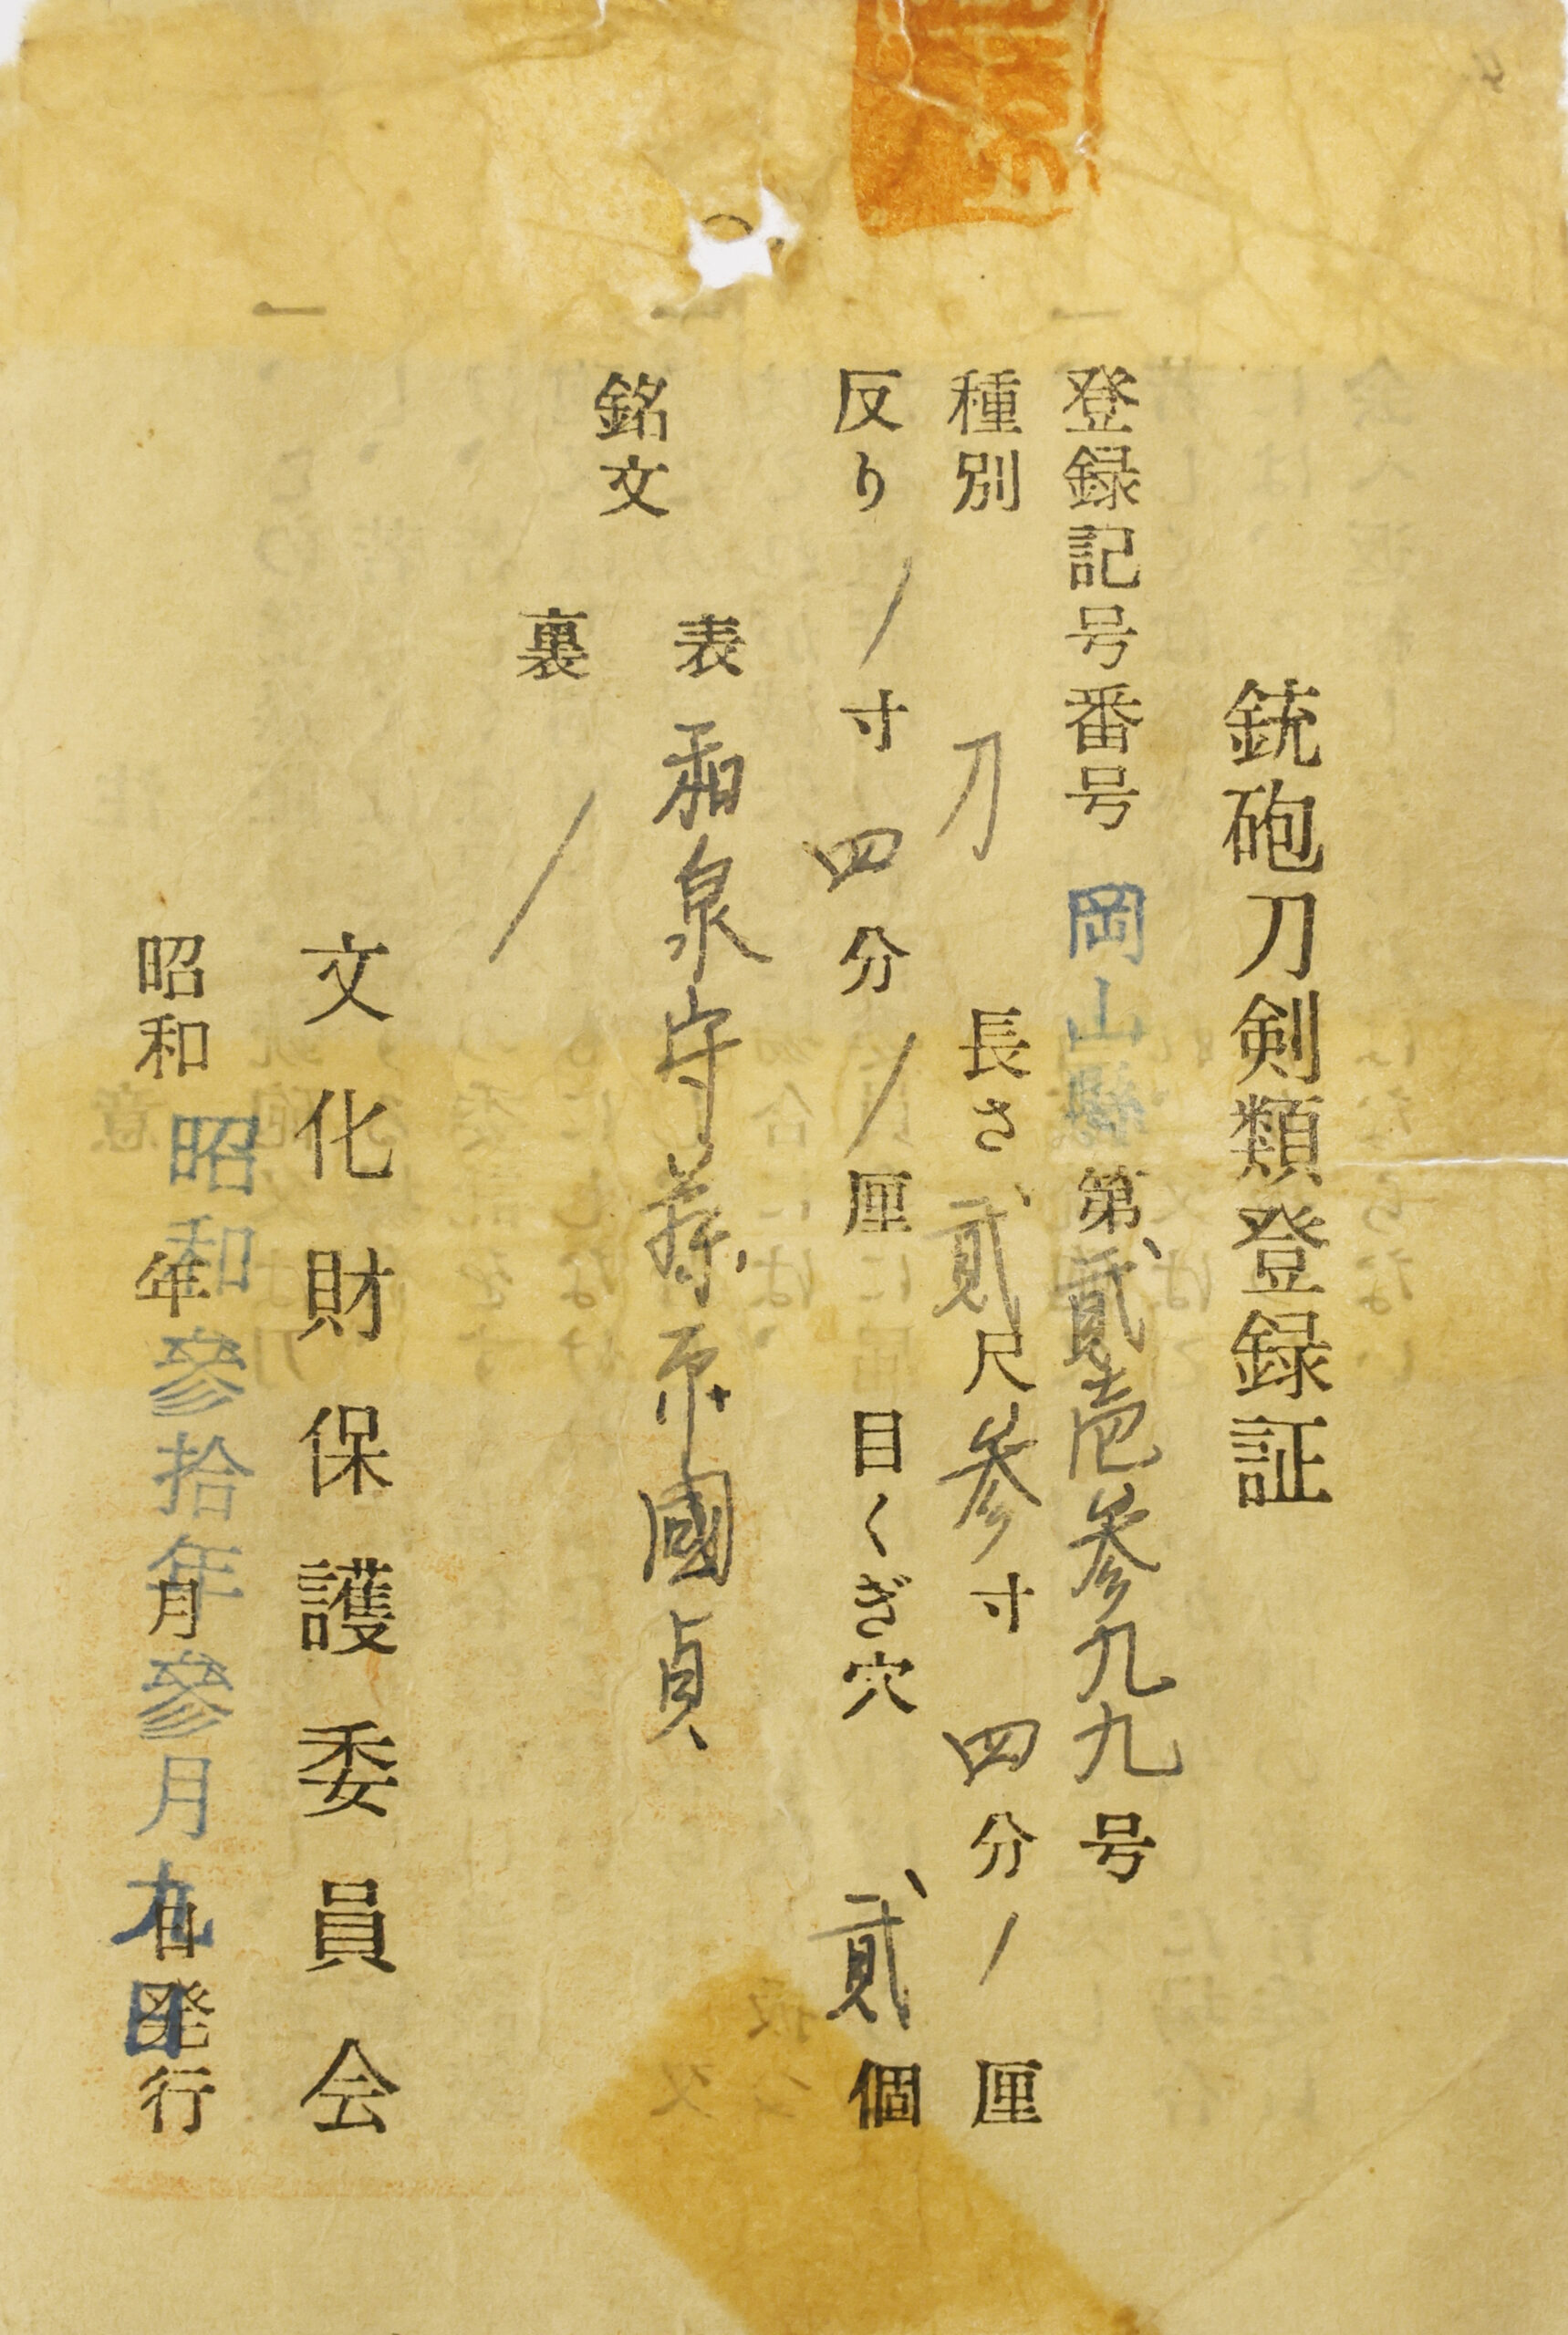 銃砲刀剣類登録証
登録記号番号 岡山縣第貳壱参九九号
種別 刀 長さ 貳尺参寸四分/厘
反り /寸四分/厘 目くぎ穴 貳個
銘文
表 和泉守藤原國貞
裏 /
文化財保護委員会
昭和 年 月 日発行
昭和參拾年參月九日